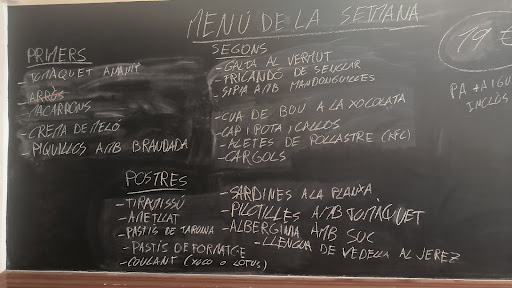 MENÚ DE LA SETMANA
PRIMERS
- TOMÀQUET AMANIT
- ARRÒS
- MACARRONS
- CREMA DE MELÓ
- PIQUILLOS AMB BRANDADA
SEGONS
- GALTA AL VERMUT
- FRICANDÓ DE SENGLAR
- SIPIA AMB MANDONGUILLES
- CUA DE BOU A LA XOCOLATA
- CAP I POTA I CALLOS
- ALETES DE POLLASTRE (KFC)
- CARGOLS
- SARDINES A LA PLANXA
- PILOTILLES AMB TOMÀQUET
- ALBERGINIA AMB SUC
- LLENGUA DE VEDELLA AL JEREZ
POSTRES
- TIRAMISSÚ
- AMETLLAT
- PASTÍS DE
- PASTÍS DE FORMATGE
- COULANT (XOCO O LOTUS)
19 €
PA + AIGU
INCLÒS